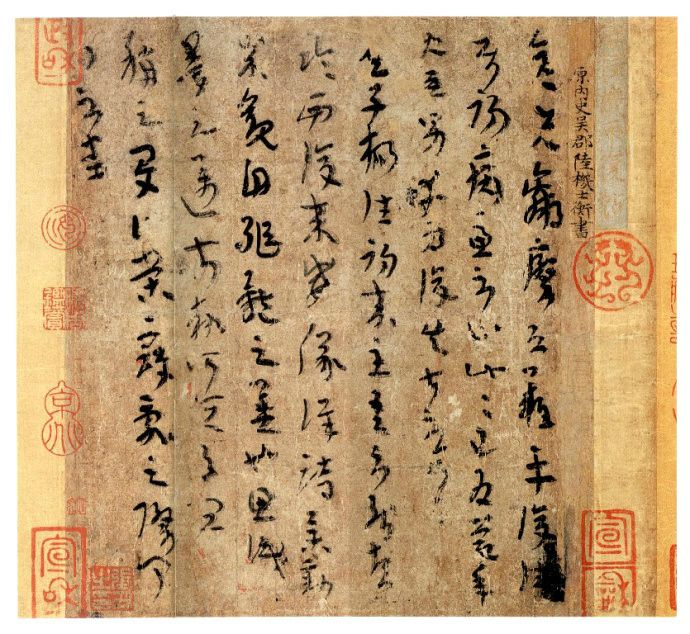 原內史吳郡陸機士衡書
彦先羸瘵恐難平復往屬
初病慮不止此此已為慶承
使唯男幸為復失前憂耳
吳子楊往初來主吾不能盡
臨西復來威儀詳跱舉動
成觀自軀體之美也思識
量之邁前執所恒有宜
稱之夏伯榮寇亂之際聞
問不悉
政和
宣和
宣和